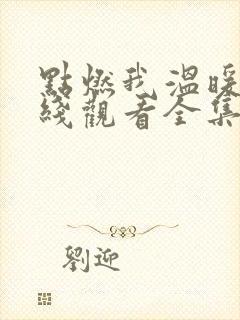 點燃我溫暖
綫觀看全集
劉迎